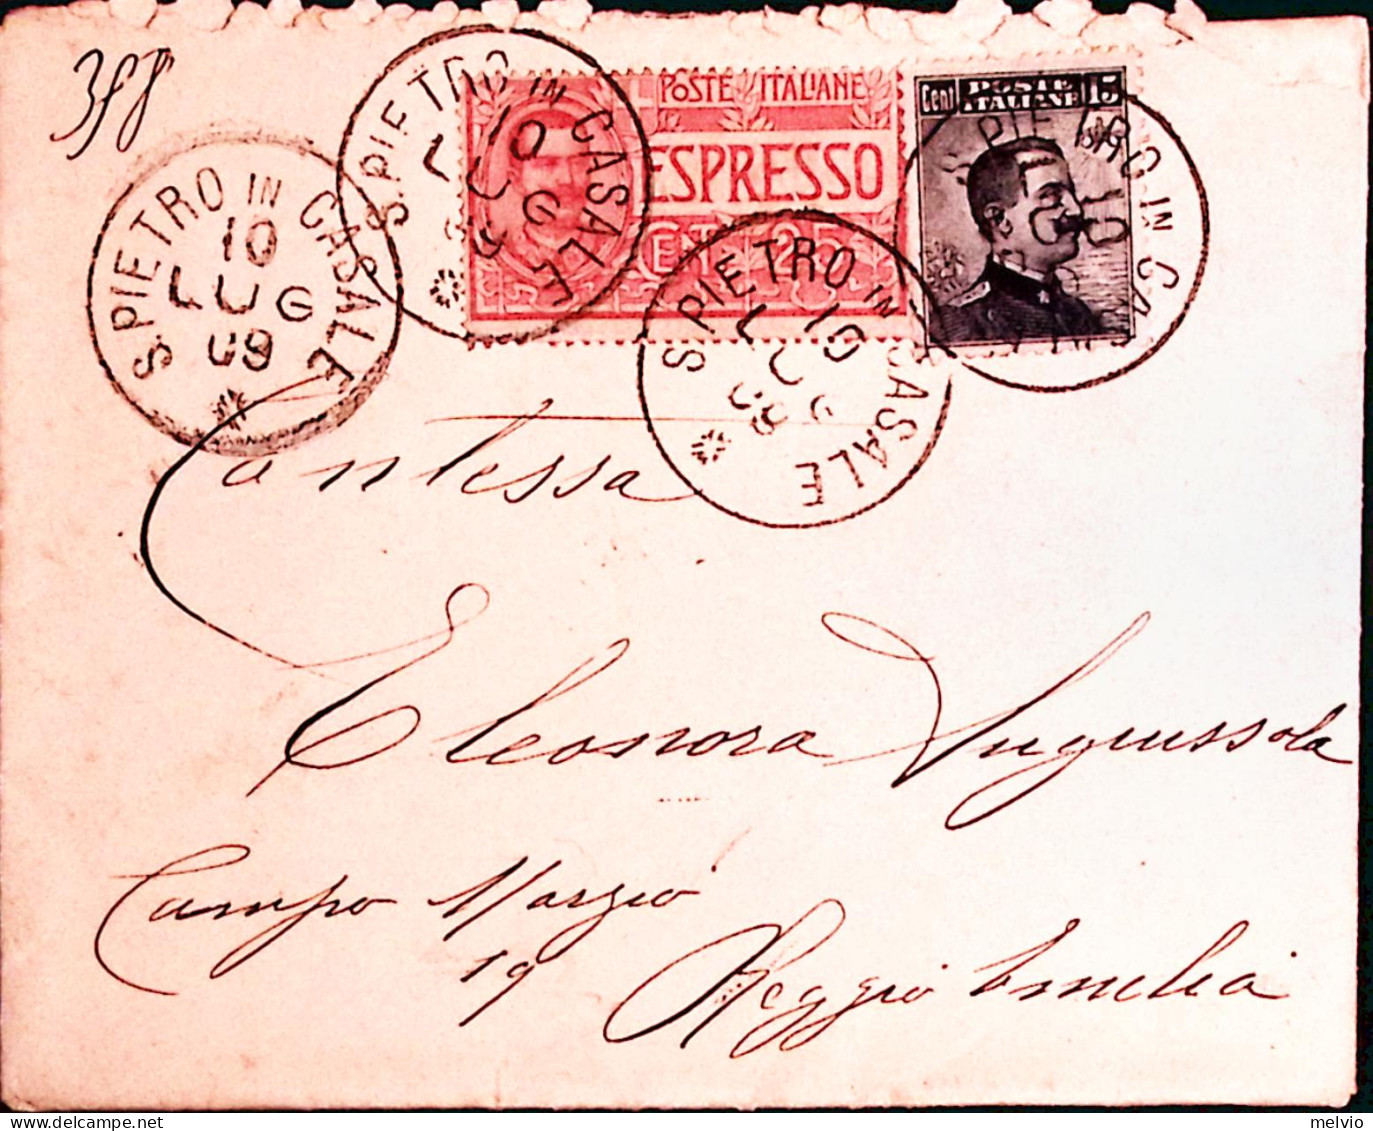 358
S.PIETRO IN CASALE
10
LUG
09
S.PIETRO IN CASALE
10
LUG
09
POSTE ITALIANE
ESPRESSO
CENT. 25
S.PIETRO IN CASALE
10
LUG
09
Cent POSTE ITALIANE 15
S.PIETRO IN CA
10
Contessa
Eleonora Anguissola
Campo Marzio
19 Reggio Emilia
melvio